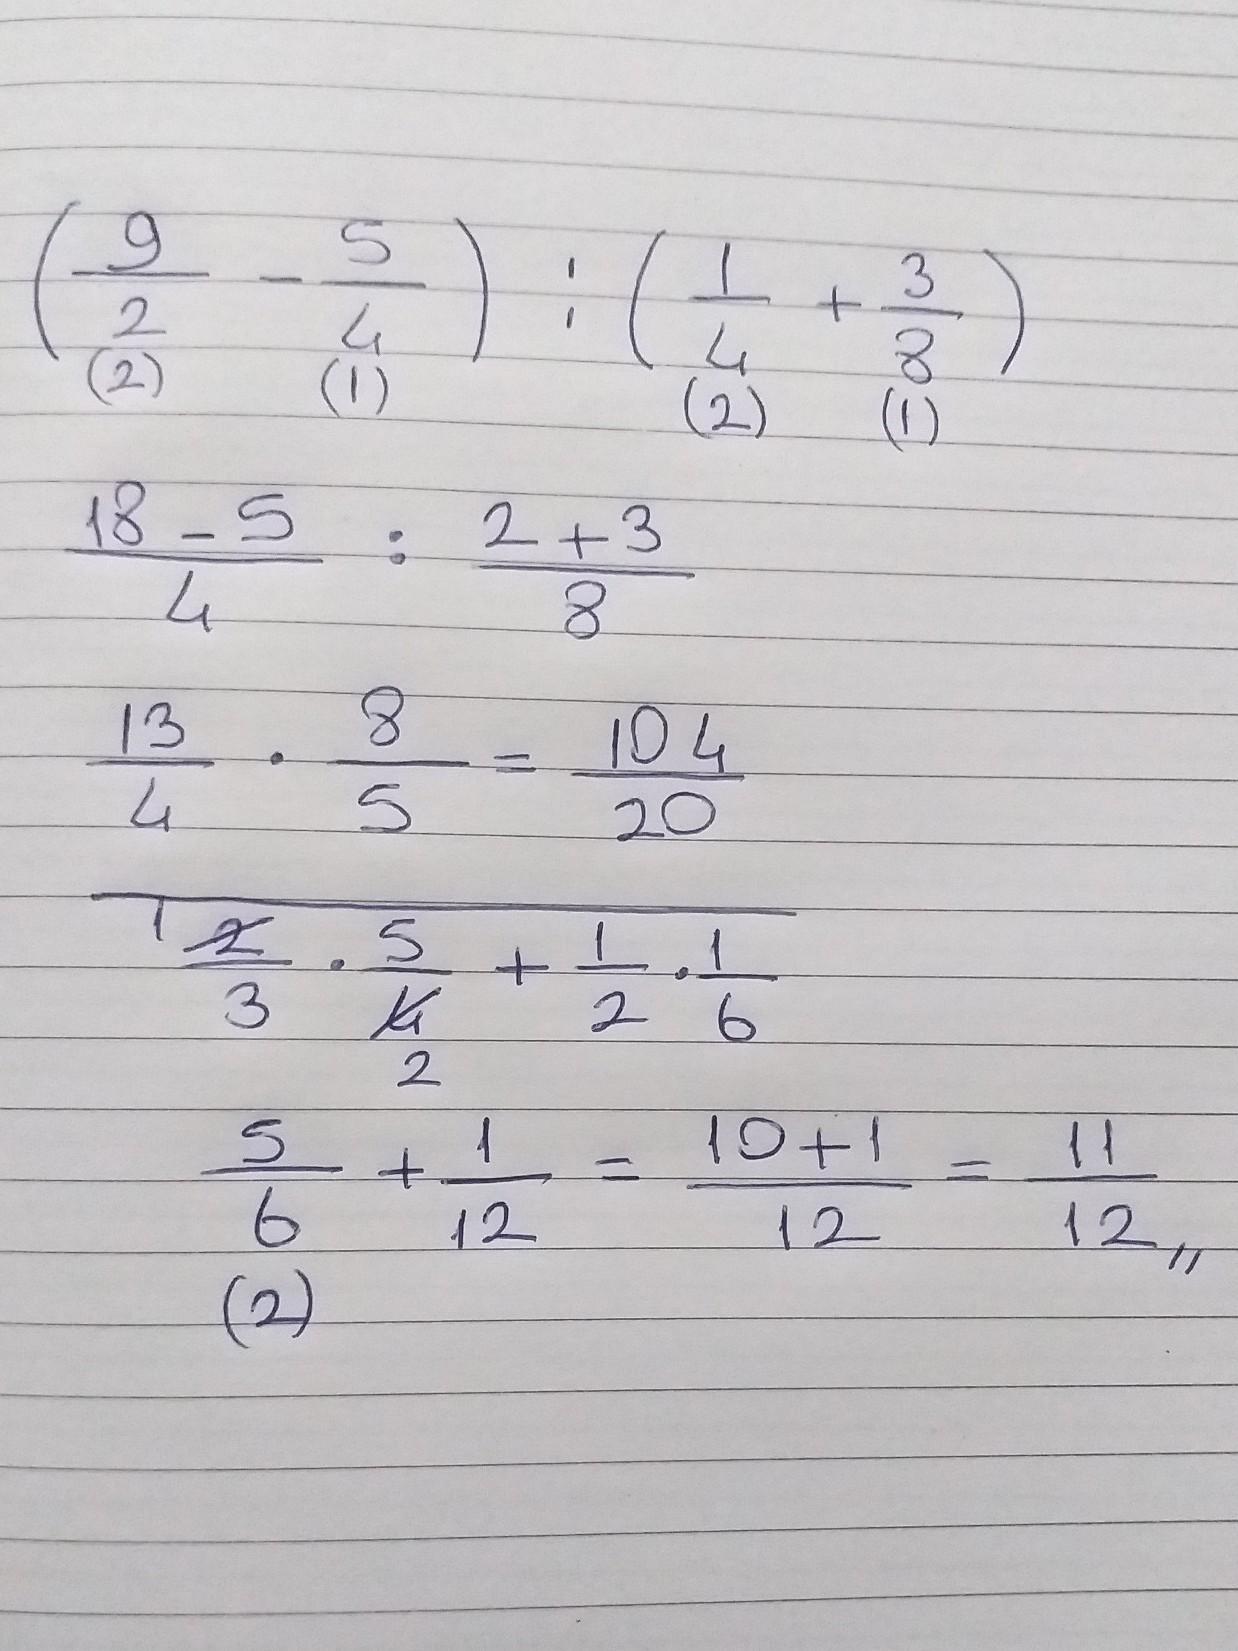 (9/2 - 5/4) : (1/4 + 3/8)
(2) (1) (2) (1)
18 - 5/4 : 2 + 3/8
13/4 · 8/5 = 104/20
1 2/3 · 5/4 + 1/2 · 1/6
2
5/6 + 1/12 = 10+1/12 = 11/12 ,,
(2)